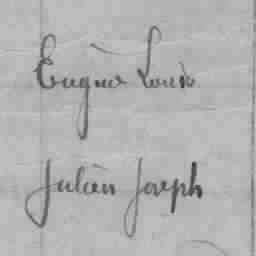 Eugène Louis
Julien Joseph